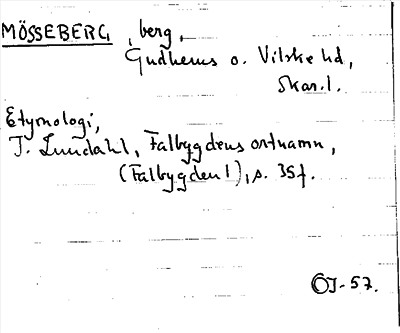 MÖSSEBERG, berg,
Gudhems o. Vilske hd,
Skar.l.
Etymologi,
I. Lundahl, Falbygdens ortnamn,
(Falbygden 1), s. 35f.
OJ-57.